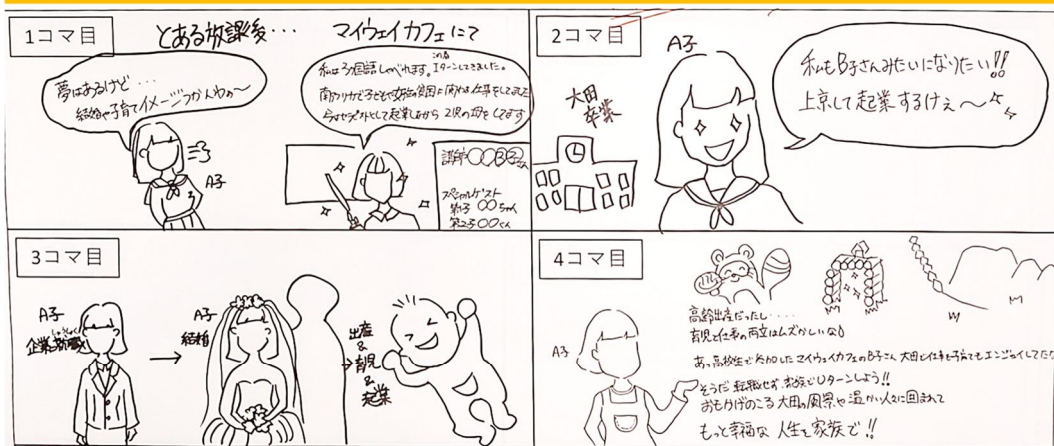 1コマ目
とある放課後… マイウェイカフェにて
夢はあるけど…
結婚や子育てイメージつかんわぁ〜
A子
私は3カ国語しゃべれます。Iターンしてきました。
南アフリカで子どもや女性の貧困に関わる仕事をしてました
セラピストとして起業しながら 2児の母をしてます
講師 〇〇B子さん
スペシャルゲスト
第1子 〇〇ちゃん
第2子 〇〇くん
2コマ目
A子
大田
卒業
私もB子さんみたいになりたい!!
上京して起業するけぇ〜
3コマ目
A子
企業就職
しゅうしょく
→
A子
結婚
→
出産
&
育児
&
起業
4コマ目
A子
高齢出産だったし....
育児と仕事の両立はムズかしいな
あっ高校生で参加したマイウェイカフェのB子さん 大田で仕事も子育てもエンジョイしてたな
そうだ 転職せず 家族でUターンしよう!!
おもかげのこる 大田の風景や 温かい人々に囲まれて
もっと幸福な 人生を家族で!!